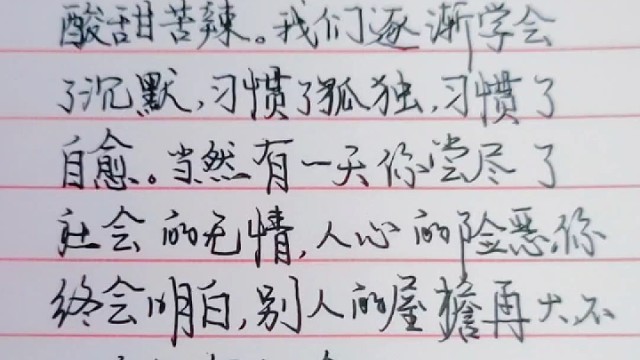 酸甜苦辣。我们逐渐学会
了沉默,习惯了孤独,习惯了
自愈。当然有一天你尝尽了
社会的无情,人心的险恶你
终会明白,别人的屋檐再大,不